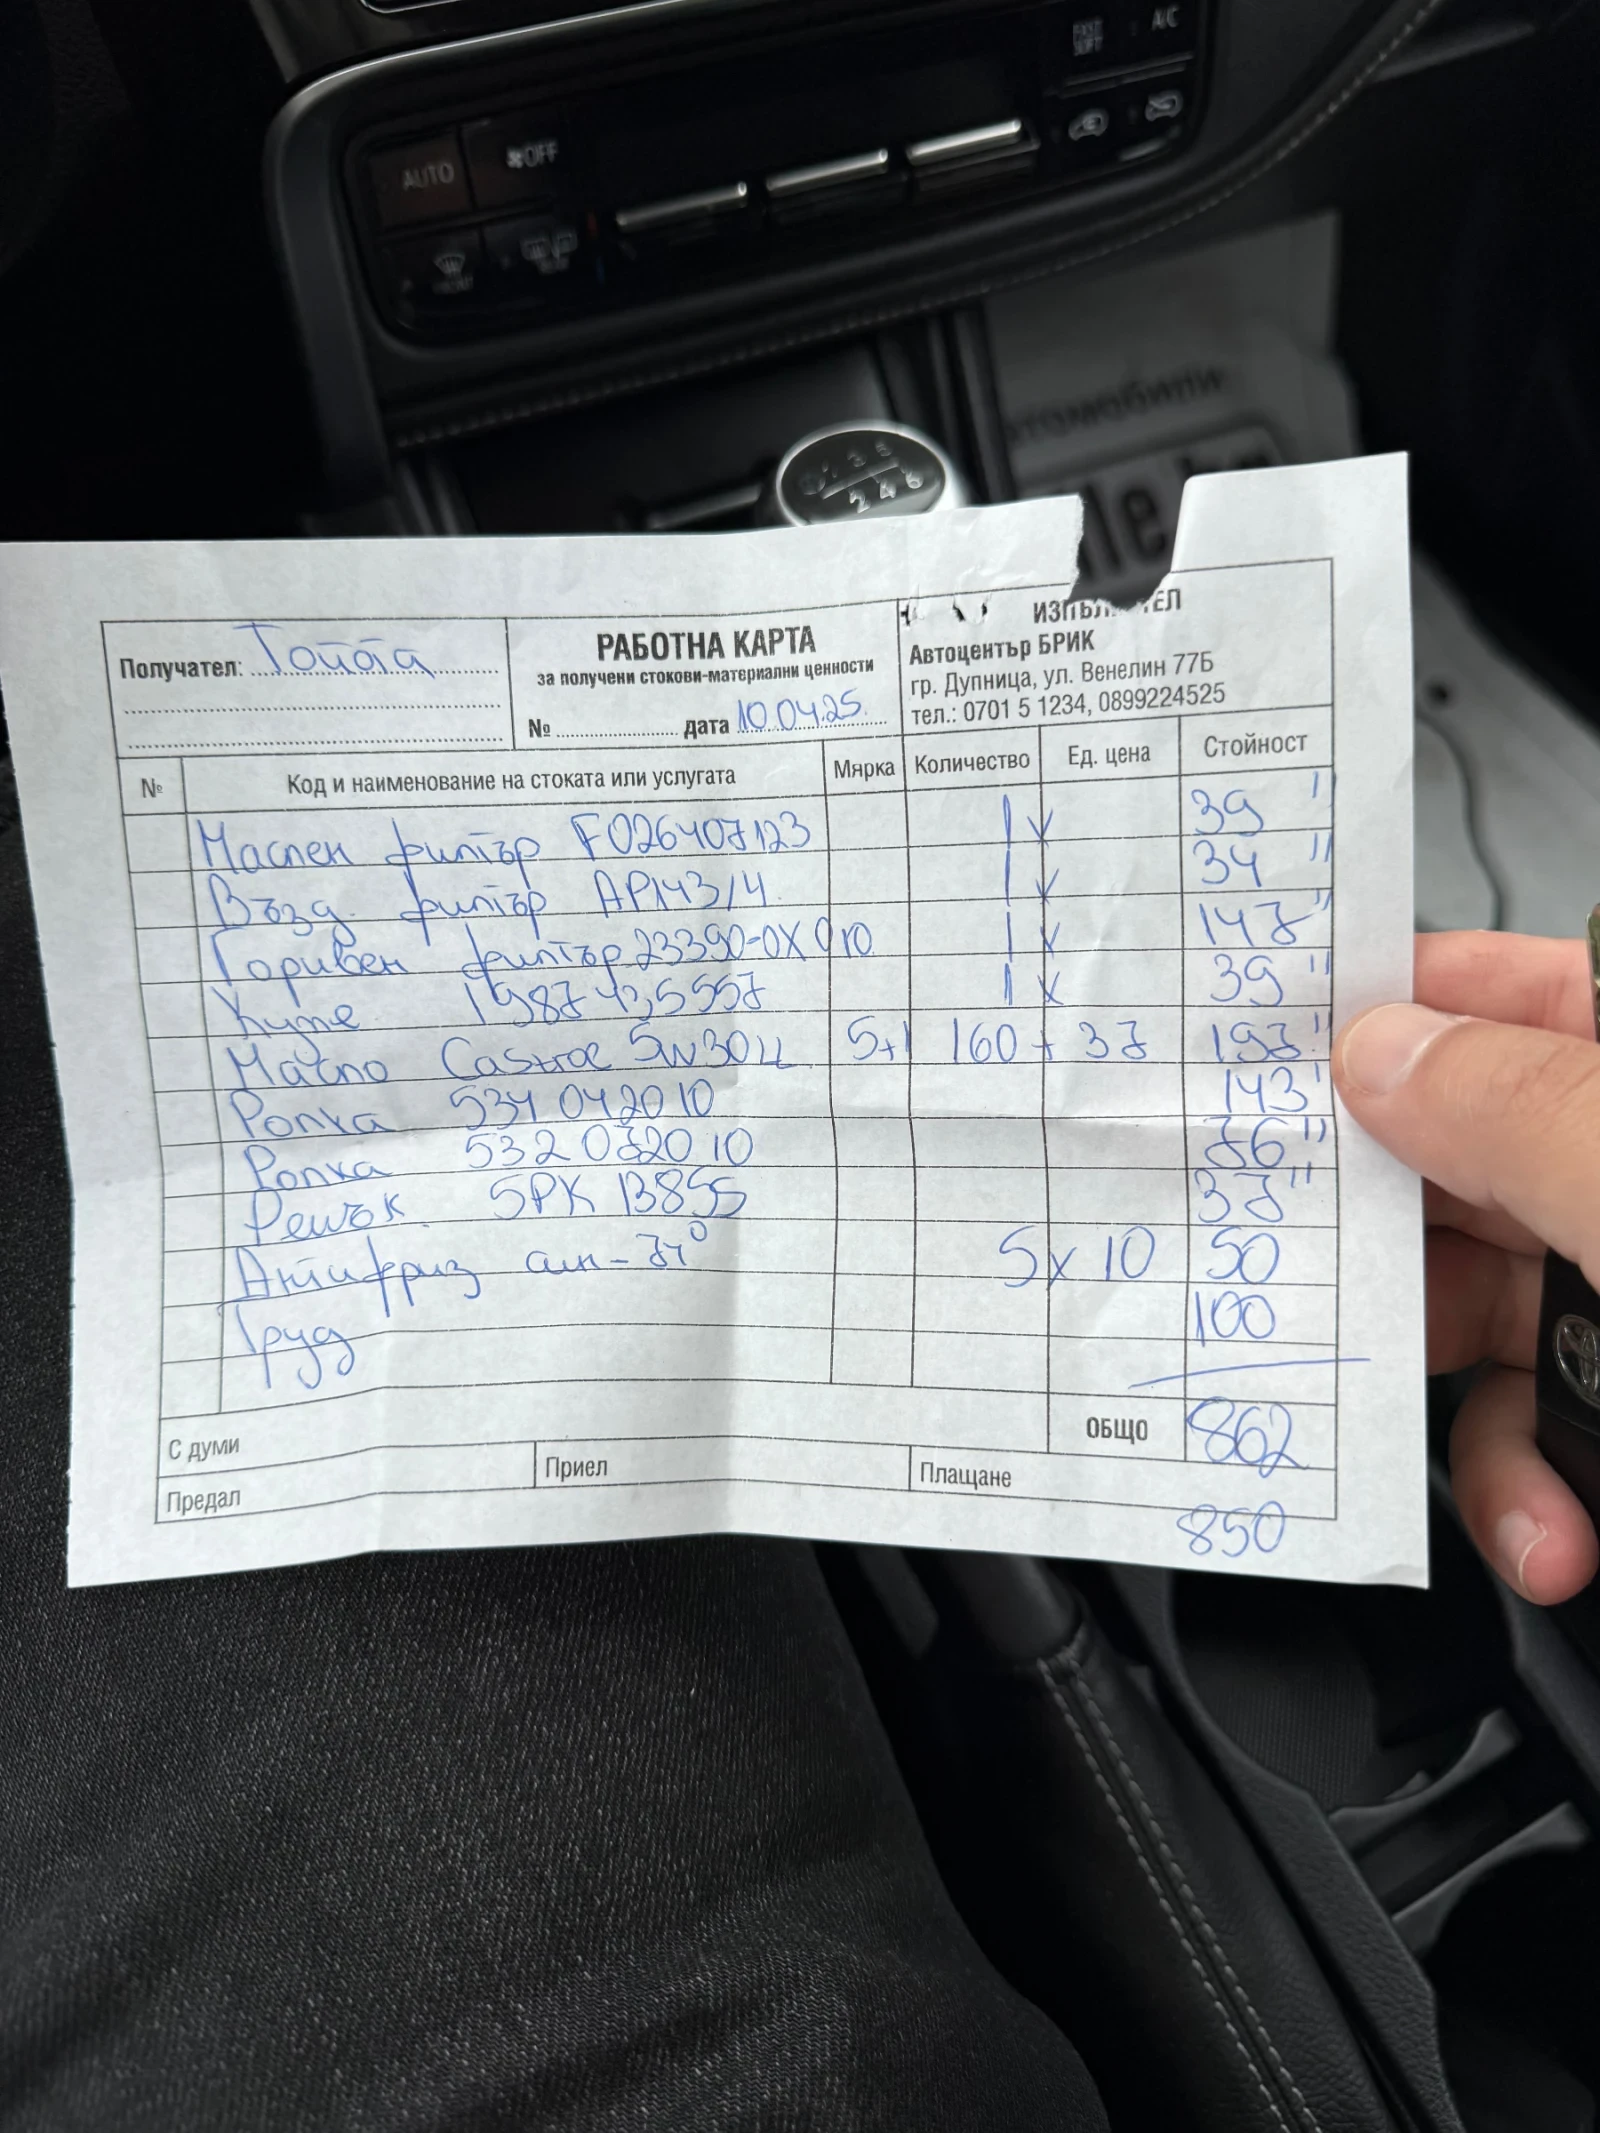 A/C
AUTO
OFF
FRONT
1 3 5
2 4 6
томобили
le.bg
Получател: Тойота
РАБОТНА КАРТА
за получени стоково-материални ценности
№ дата 10.04.25.
ИЗПЪЛ ТЕЛ
Автоцентър БРИК
гр. Дупница, ул. Венелин 77Б
тел.: 0701 5 1234, 0899224525
№ Код и наименование на стоката или услугата Мярка Количество Ед. цена Стойност
Маслен филтър F026407123 1 x 39 "
Възд. филтър AP143/4 1 x 34 "
Горивен филтър 23390-0X010 1 x 147 "
Купе 1987435557 1 x 39 "
Масло Castrol 5W30LL 5+1 160 + 37 197 "
Ролка 534042010 143 "
Ролка 532072010 76 "
Ремък 5PK 1355 37 "
Антифриз син -74° 5 x 10 50
Труд 100
ОБЩО 862
С думи
Предал Приел Плащане
850